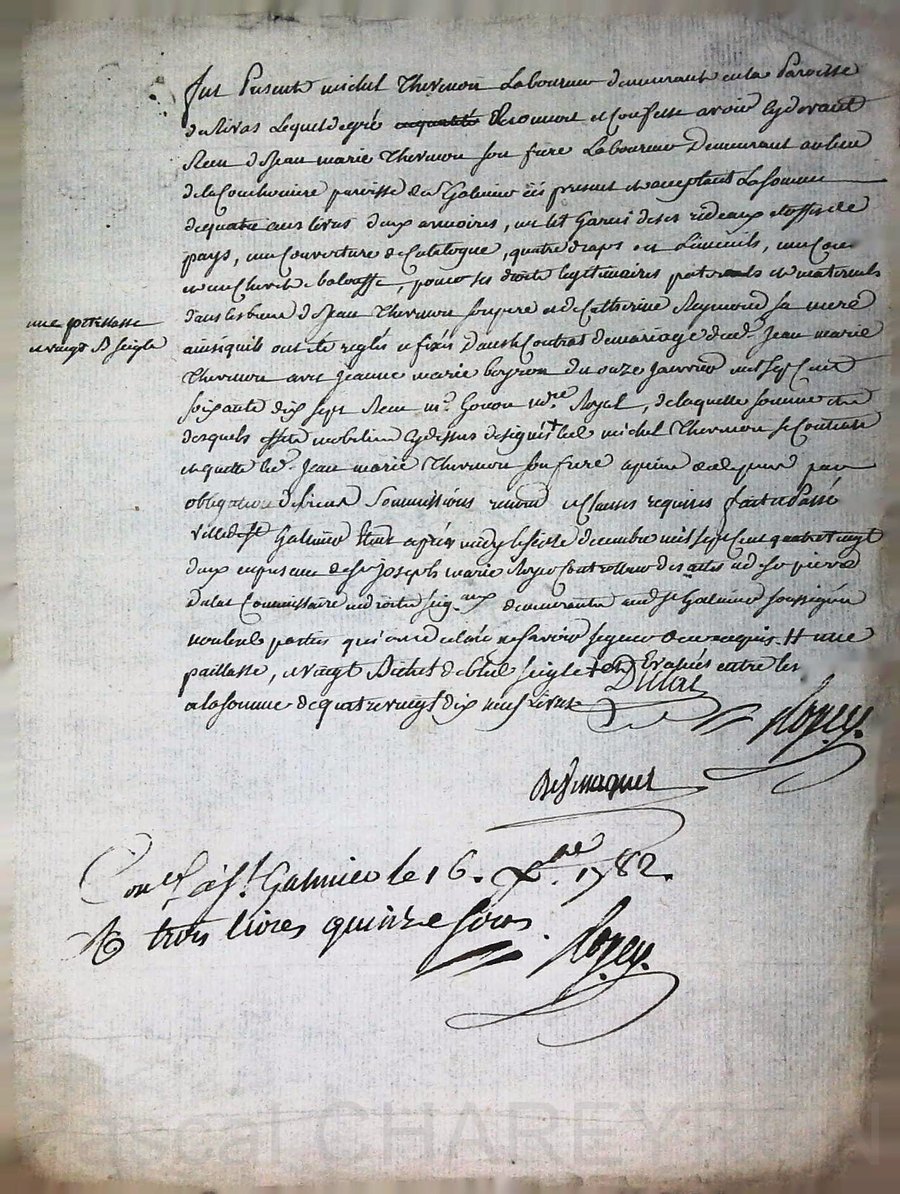 fut Presente michel Thevenon Laboureur demeurant en la Paroisse
de Rivas Lequel de gré Reconnoit et Confesse avoir cy devant
Receu de Jean marie Thevenon son frere Laboureur Demeurant au lieu
de la paroisse de St Galmier icy present et acceptant La somme
de quatre livres deux armoires, un lit Garni de ses rideaux etoffe de
pays, une Couverture de Catalogne, quatre draps
et un Chevet baloffe, pour ses droits legitimaires paternels et maternels
dans les biens de Jean Thevenon son pere et de Catherine Raymond sa mere
une paillasse
et vingt B. seigle
ainsi quils ont eté reglés et fixés Dans le Contrat de mariage dud. Jean marie
Thevenon avec Jeanne marie du onze Janvier mil sept Cent
soixante dix sept Receu me. Gonon nore Royal, de laquelle somme et
desquels effets mobiliers cy dessus designés led. michel Thevenon se Contente
et quitte led. Jean marie Thevenon son frere
obligations Soumissions renon. et Clauses requises fait et Passé
ville de St Galmier Etude après midy le seize decembre mil sept Cent quatre vingt
deux en presence de sr Joseph marie Controlleur des actes et de sr pierre
Dulac Commissaire en droits seig.aux demeurants aud. St Galmier soussignés
non les parties qui ont declaré ne savoir signer de ce requis. # une
paillasse, et vingt Bichets de bled seigle Evalués entre les
a la somme de quatre vingt dix neuf Livres
Dulac
Con.lé à St. Galmier le 16. Xbre 1782.
R trois livres quinze sous.
Pascal CHAREYRON